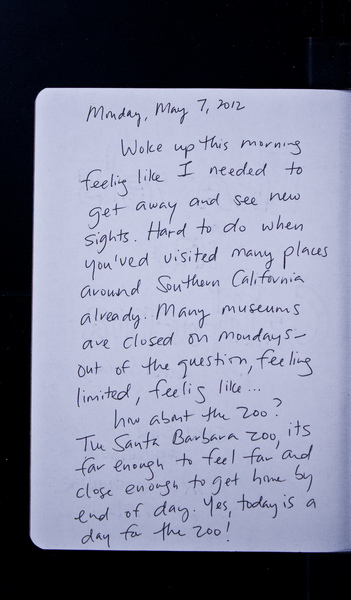 Monday, May 7, 2012
Woke up this morning
feeling like I needed to
get away and see new
sights. Hard to do when
you'ved visited many places
around Southern California
already. Many museums
are closed on mondays-
out of the question, feeling
limited, feelig like...
how about the zoo?
The Santa Barbara zoo, its
far enough to feel far and
close enough to get home by
end of day. Yes, today is a
day for the zoo!